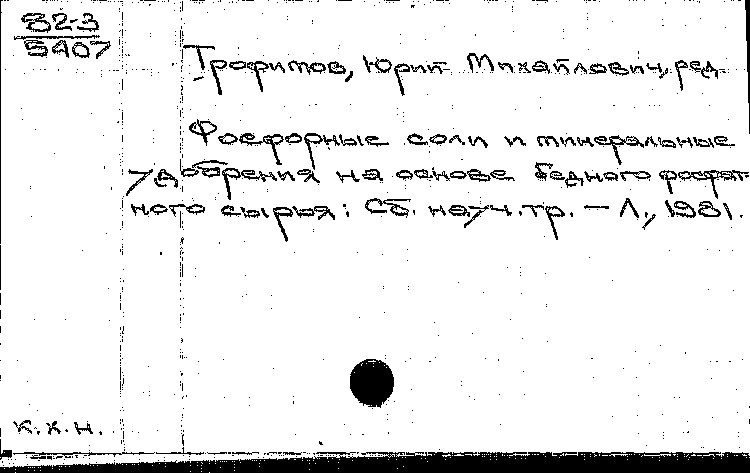 82-3
5407
Трофимов, Юрий Михайлович, ред.
Фосфорные соли и минеральные
удобрения на основе бедного фосфат-
ного сырья: Сб. науч. тр. — Л., 1981.
к.х.н.